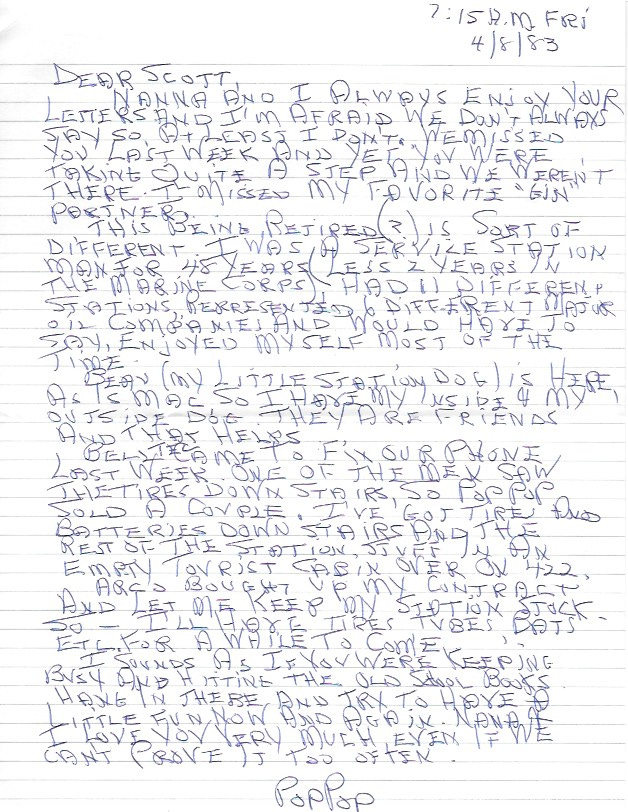 7:15 A.M. FRI
4/8/83
DEAR SCOTT,
NANNA AND I ALWAYS ENJOY YOUR
LETTERS AND I'M AFRAID WE DON'T ALWAYS
SAY SO, AT LEAST I DON'T. WE MISSED
YOU LAST WEEK AND YET YOU WERE
TAKING QUITE A STEP AND WE WEREN'T
THERE. I MISSED MY FAVORITE "GIN"
PARTNER.
THIS BEING RETIRED (?) IS SORT OF
DIFFERENT. I WAS A SERVICE STATION
MAN FOR 48 YEARS (LESS 2 YEARS IN
THE MARINE CORPS) HAD 11 DIFFERENT
STATIONS, REPRESENTED 6 DIFFERENT MAJOR
OIL COMPANIES AND WOULD HAVE TO
SAY, ENJOYED MYSELF MOST OF THE
TIME.
BEAU (MY LITTLE STATION DOG) IS HERE,
AS IS MAC SO I HAVE MY INSIDE & MY
OUTSIDE DOG. THEY ARE FRIENDS
AND THAT HELPS
BELL TEL CAME TO FIX OUR PHONE
LAST WEEK ONE OF THE MEN SAW
THE TIRES DOWN STAIRS, SO POP POP
SOLD A COUPLE. I'VE GOT TIRES AND
BATTERIES DOWN STAIRS AND THE
REST OF THE STATION STUFF IN AN
EMPTY TOURIST CABIN OVER ON 422.
ARCO BOUGHT UP MY CONTRACT
AND LET ME KEEP MY STATION STOCK
SO - I'LL HAVE TIRES TUBES BATS
ETC. FOR A WHILE TO COME
I SOUNDS AS IF YOU WERE KEEPING
BUSY AND HITTING THE OLD SCHOOL BOOKS.
HANG IN THERE AND TRY TO HAVE A
LITTLE FUN NOW AND AGAIN. NANA &
I LOVE YOU VERY MUCH, EVEN IF WE
CAN'T PROVE IT TOO OFTEN.
POPPOP